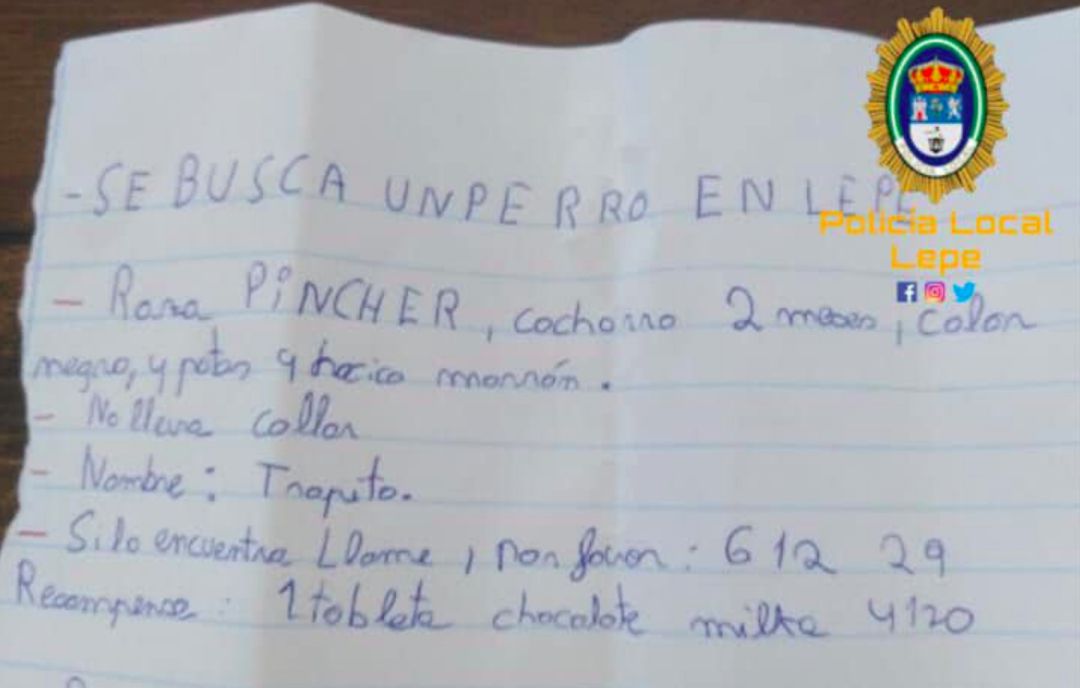 - SE BUSCA UN PERRO EN LEPE
- Raza PiNCHER, cachorro 2 meses, color
negro, y patas y hocico marrón.
- No lleva collar
- Nombre: Trapito.
- Si lo encuentra LLame, por favor: 612 29
Recompensa: 1 tableta chocolate milka 4120
Policía Local
Lepe